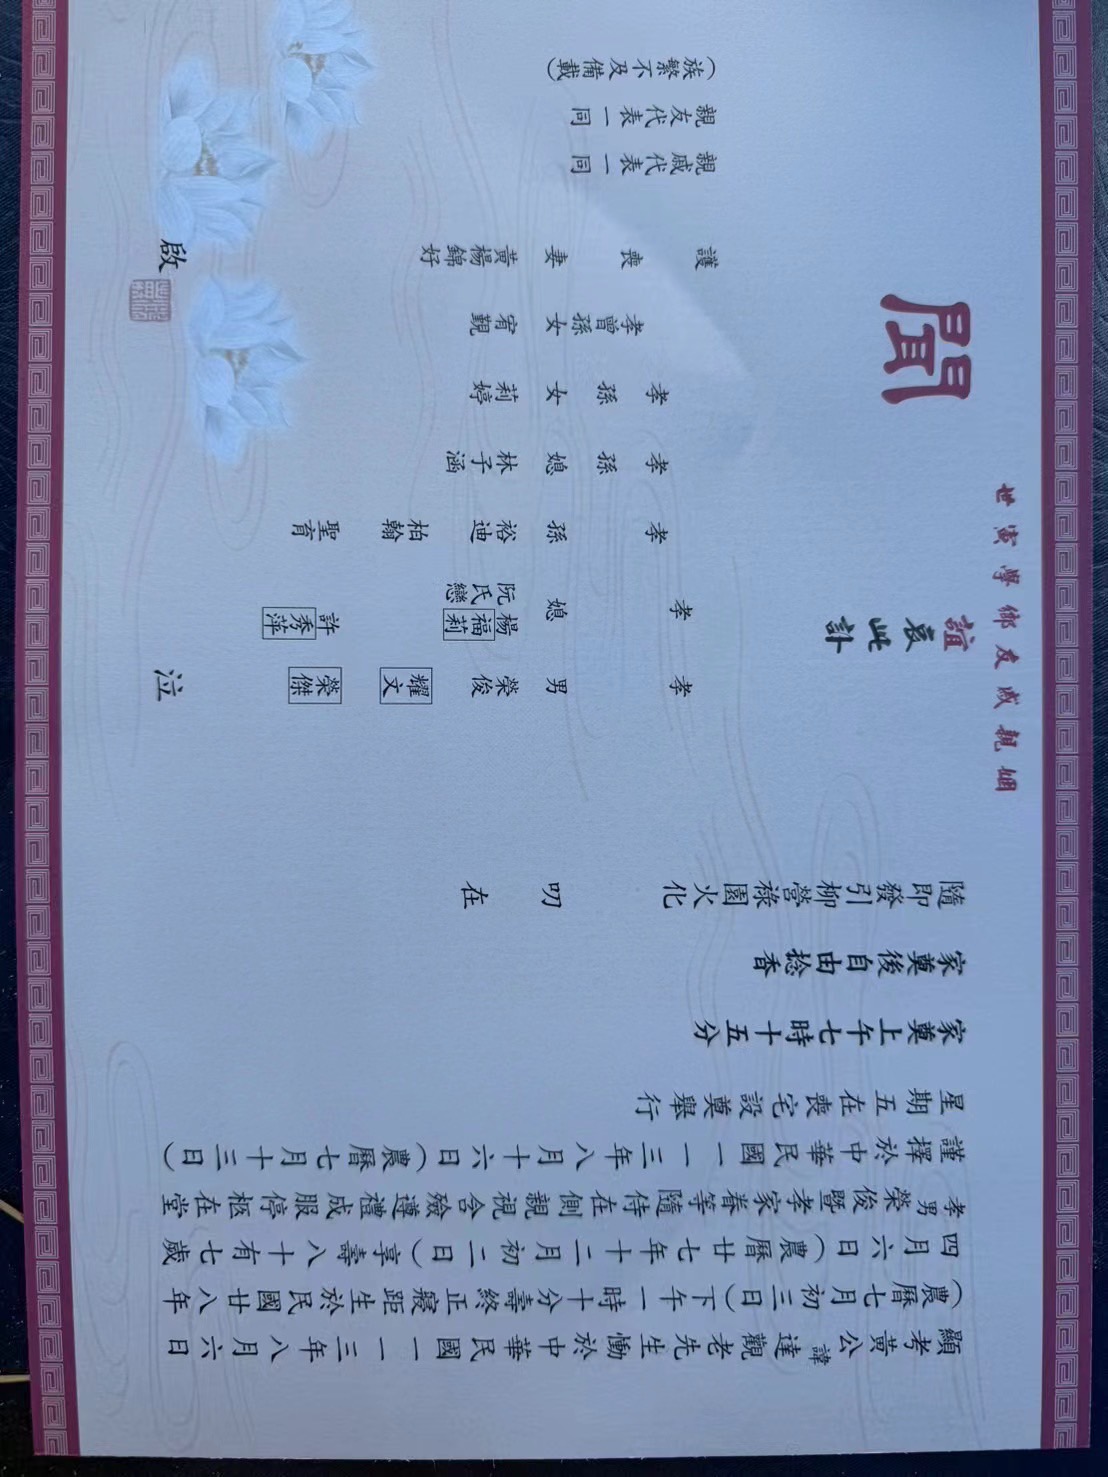 顯考黃公諱達觀老先生慟於中華民國一一三年八月六日
(農曆七月初三日)下午一時十分壽終正寢距生於民國廿八年
四月六日(農曆廿七年十二月初二日)享壽八十有七歲
孝男榮俊暨孝家眷等隨侍在側親視含殮遵禮成服停柩在堂
謹擇於中華民國一一三年八月十六日(農曆七月十三日)
星期五在喪宅設奠舉行
家奠上午七時十五分
家奠後自由捻香
隨即發引柳營祿園火化
叨在
姻親戚友鄉學寅世
誼哀此訃
聞
孝男 榮俊 耀文 榮傑 泣
孝媳 阮氏戀 楊福莉 許秀萍
孝孫 裕迪 柏翰 聖育
孝孫媳 林子涵
孝孫女 莉婷
孝曾孫女 宥覲
護喪妻 黃楊錦好
啟
親戚代表一同
親友代表一同
(族繁不及備載)